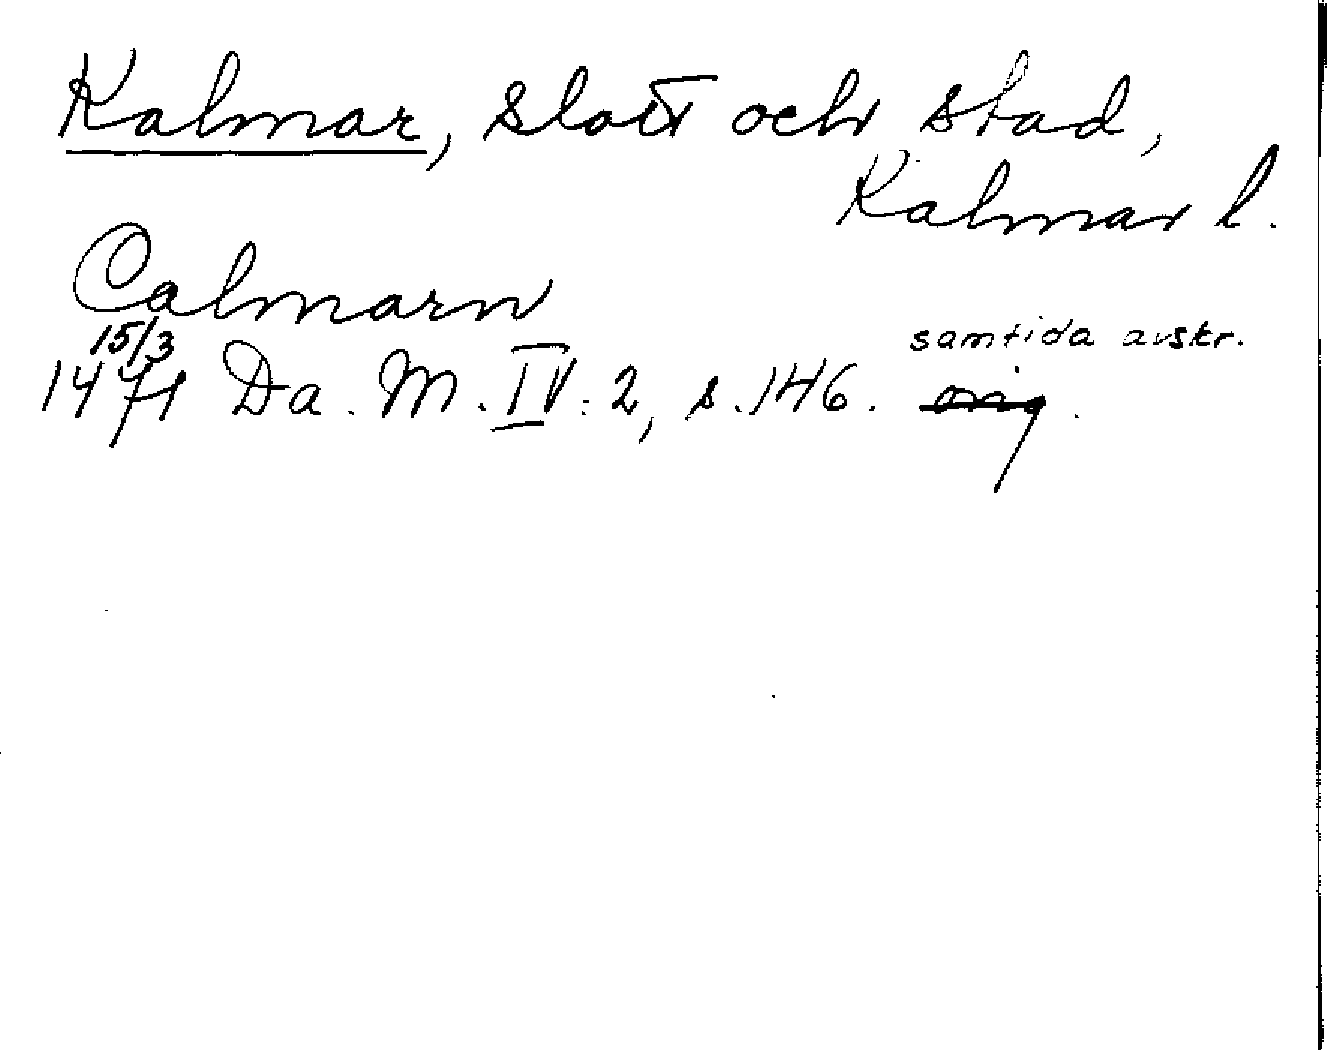 Kalmar, slott och stad,
Kalmar l.
Calmarn
15/3
samtida avskr.
1471 Da. M. IV: 2, s. 146. orig.